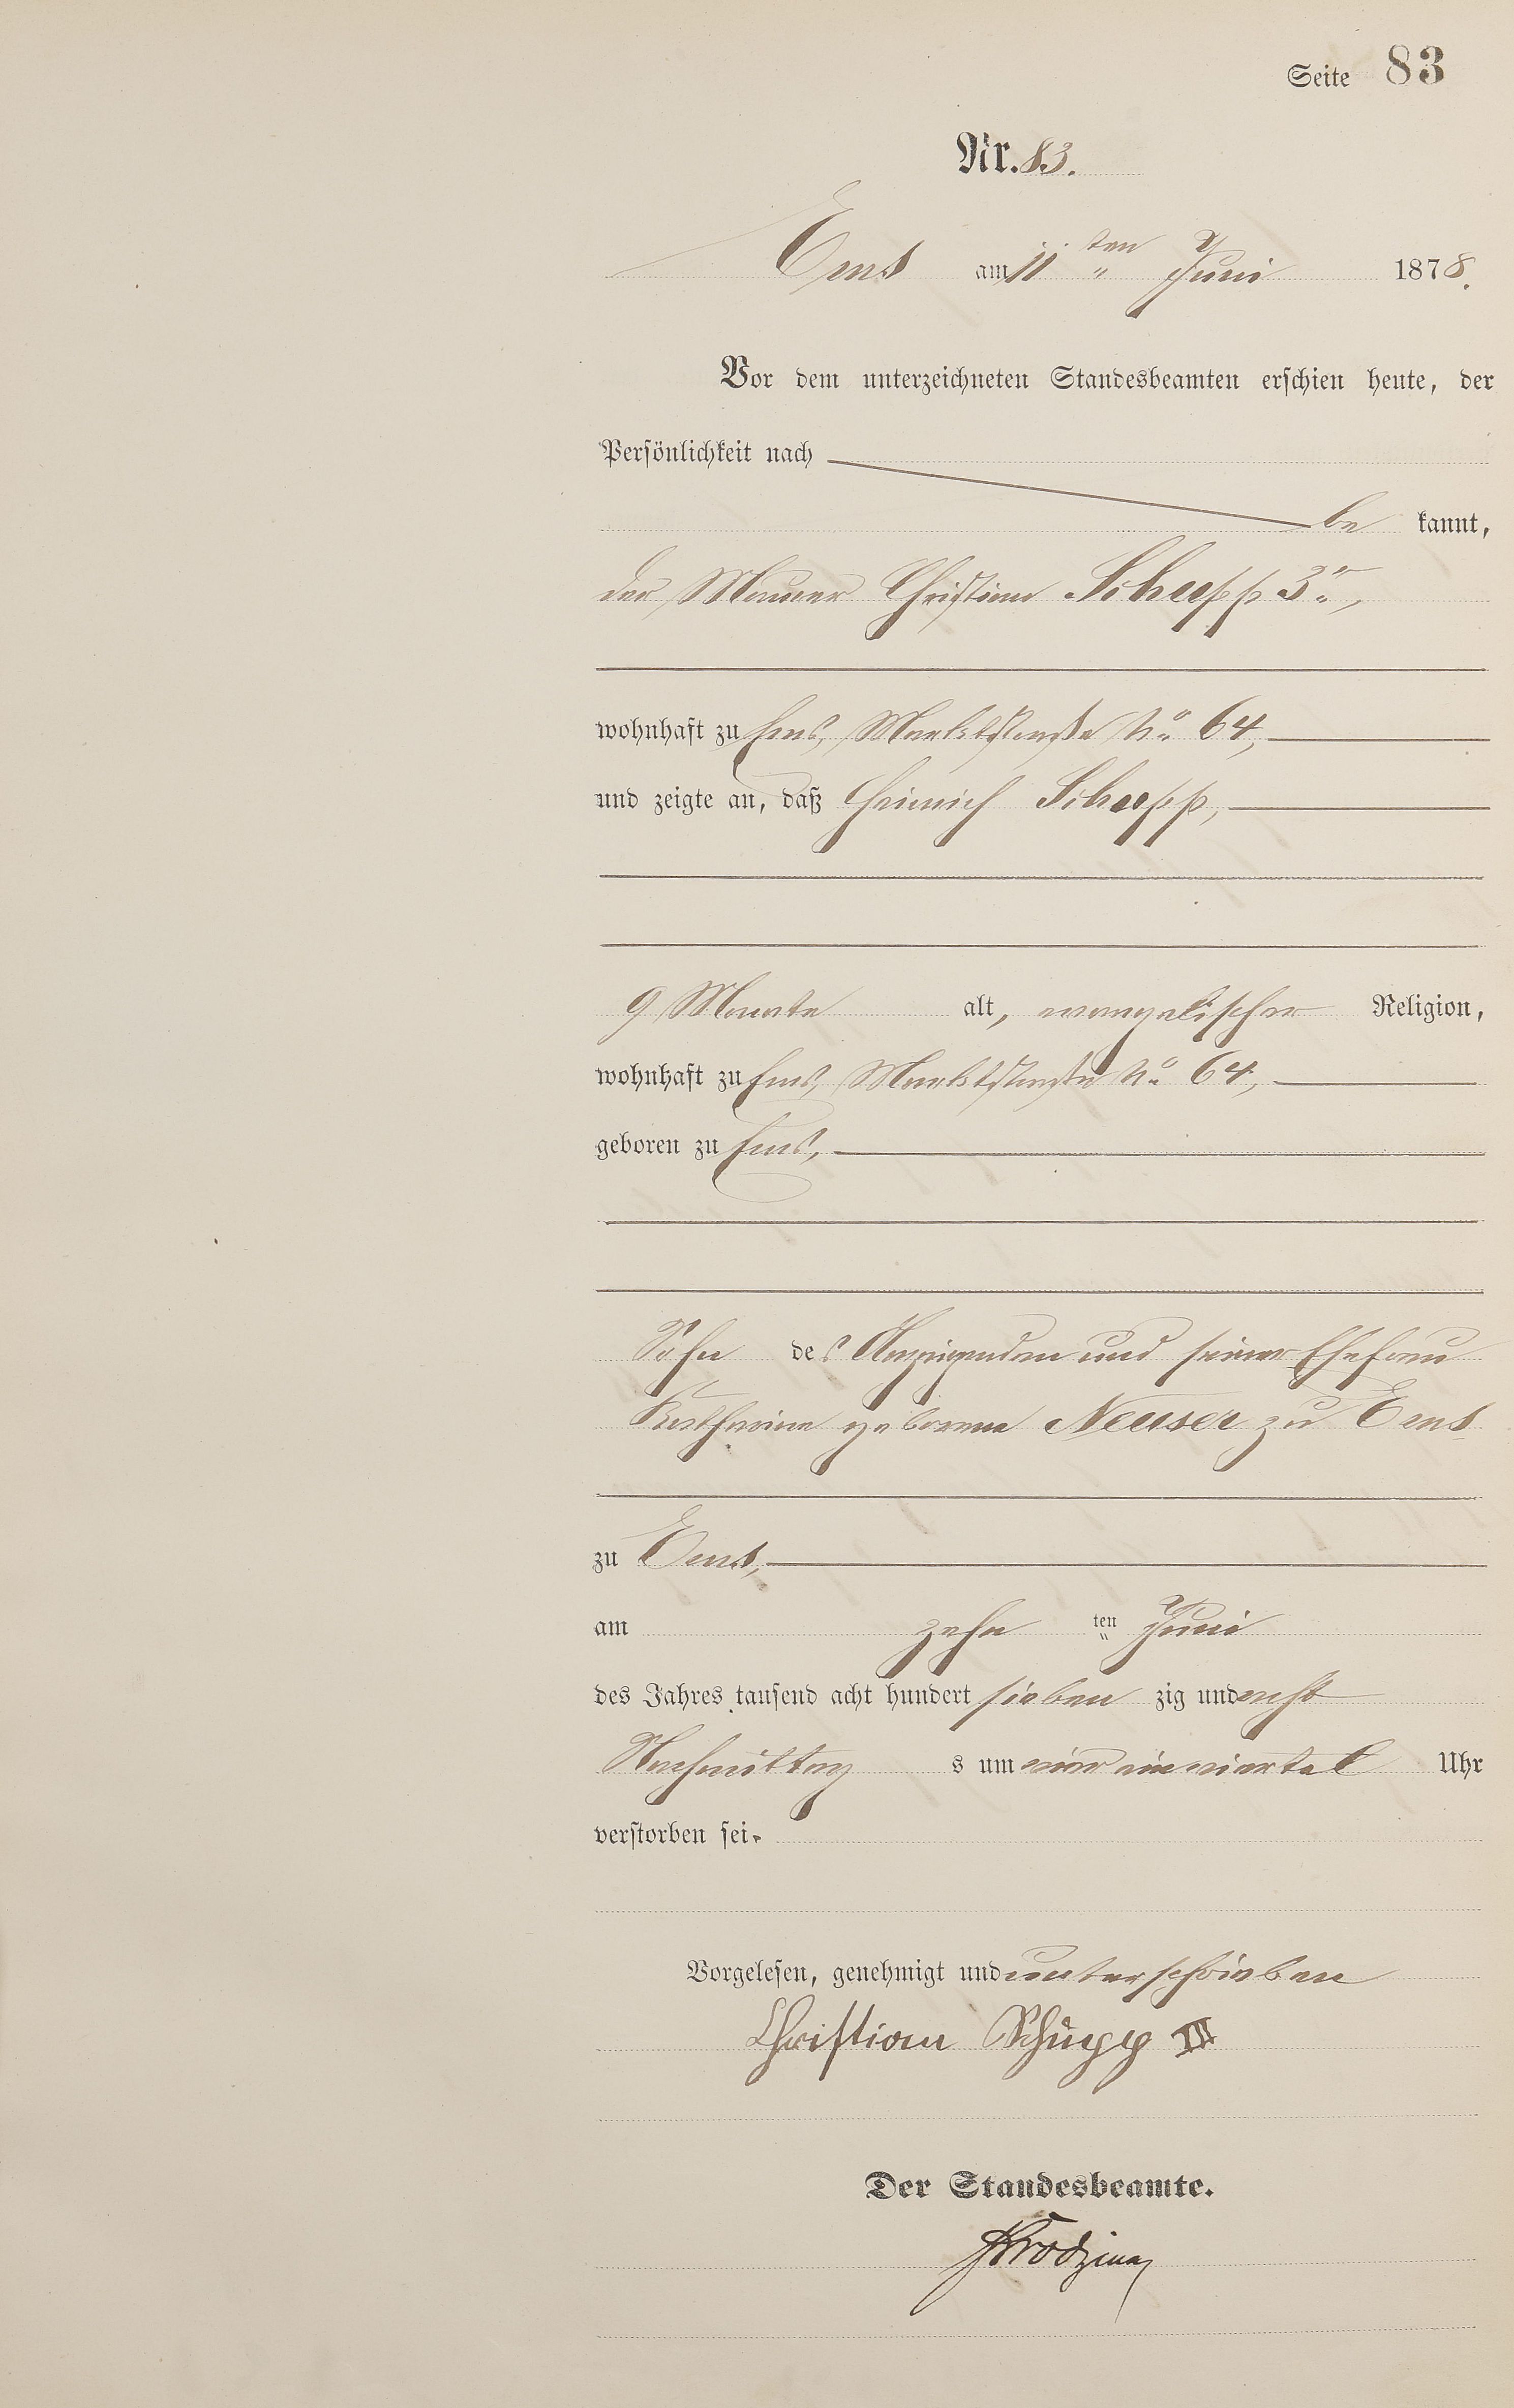 Seite 83
Nr. 83.
Ems am 11ten Juni 1878.
Vor dem unterzeichneten Standesbeamten erschien heute, der
Persönlichkeit nach
be kannt,
der Maurer Christian Schupp 3r,
wohnhaft zu Ems, Marktstraße No 64,
und zeigte an, daß Heinrich Schupp,
9 Monate alt, evangelischer Religion,
wohnhaft zu Ems, Marktstraße No 64,
geboren zu Ems,
Sohn des Anzeigenden und seiner Ehefrau
Katharina geborene Neuser zu Ems
zu Ems,
am zehn ten Juni
des Jahres tausend acht hundert sieben zig und acht
Nachmittag s um vier ein viertel Uhr
verstorben sei.
Vorgelesen, genehmigt und unterschrieben
Christian Schupp III
Der Standesbeamte.